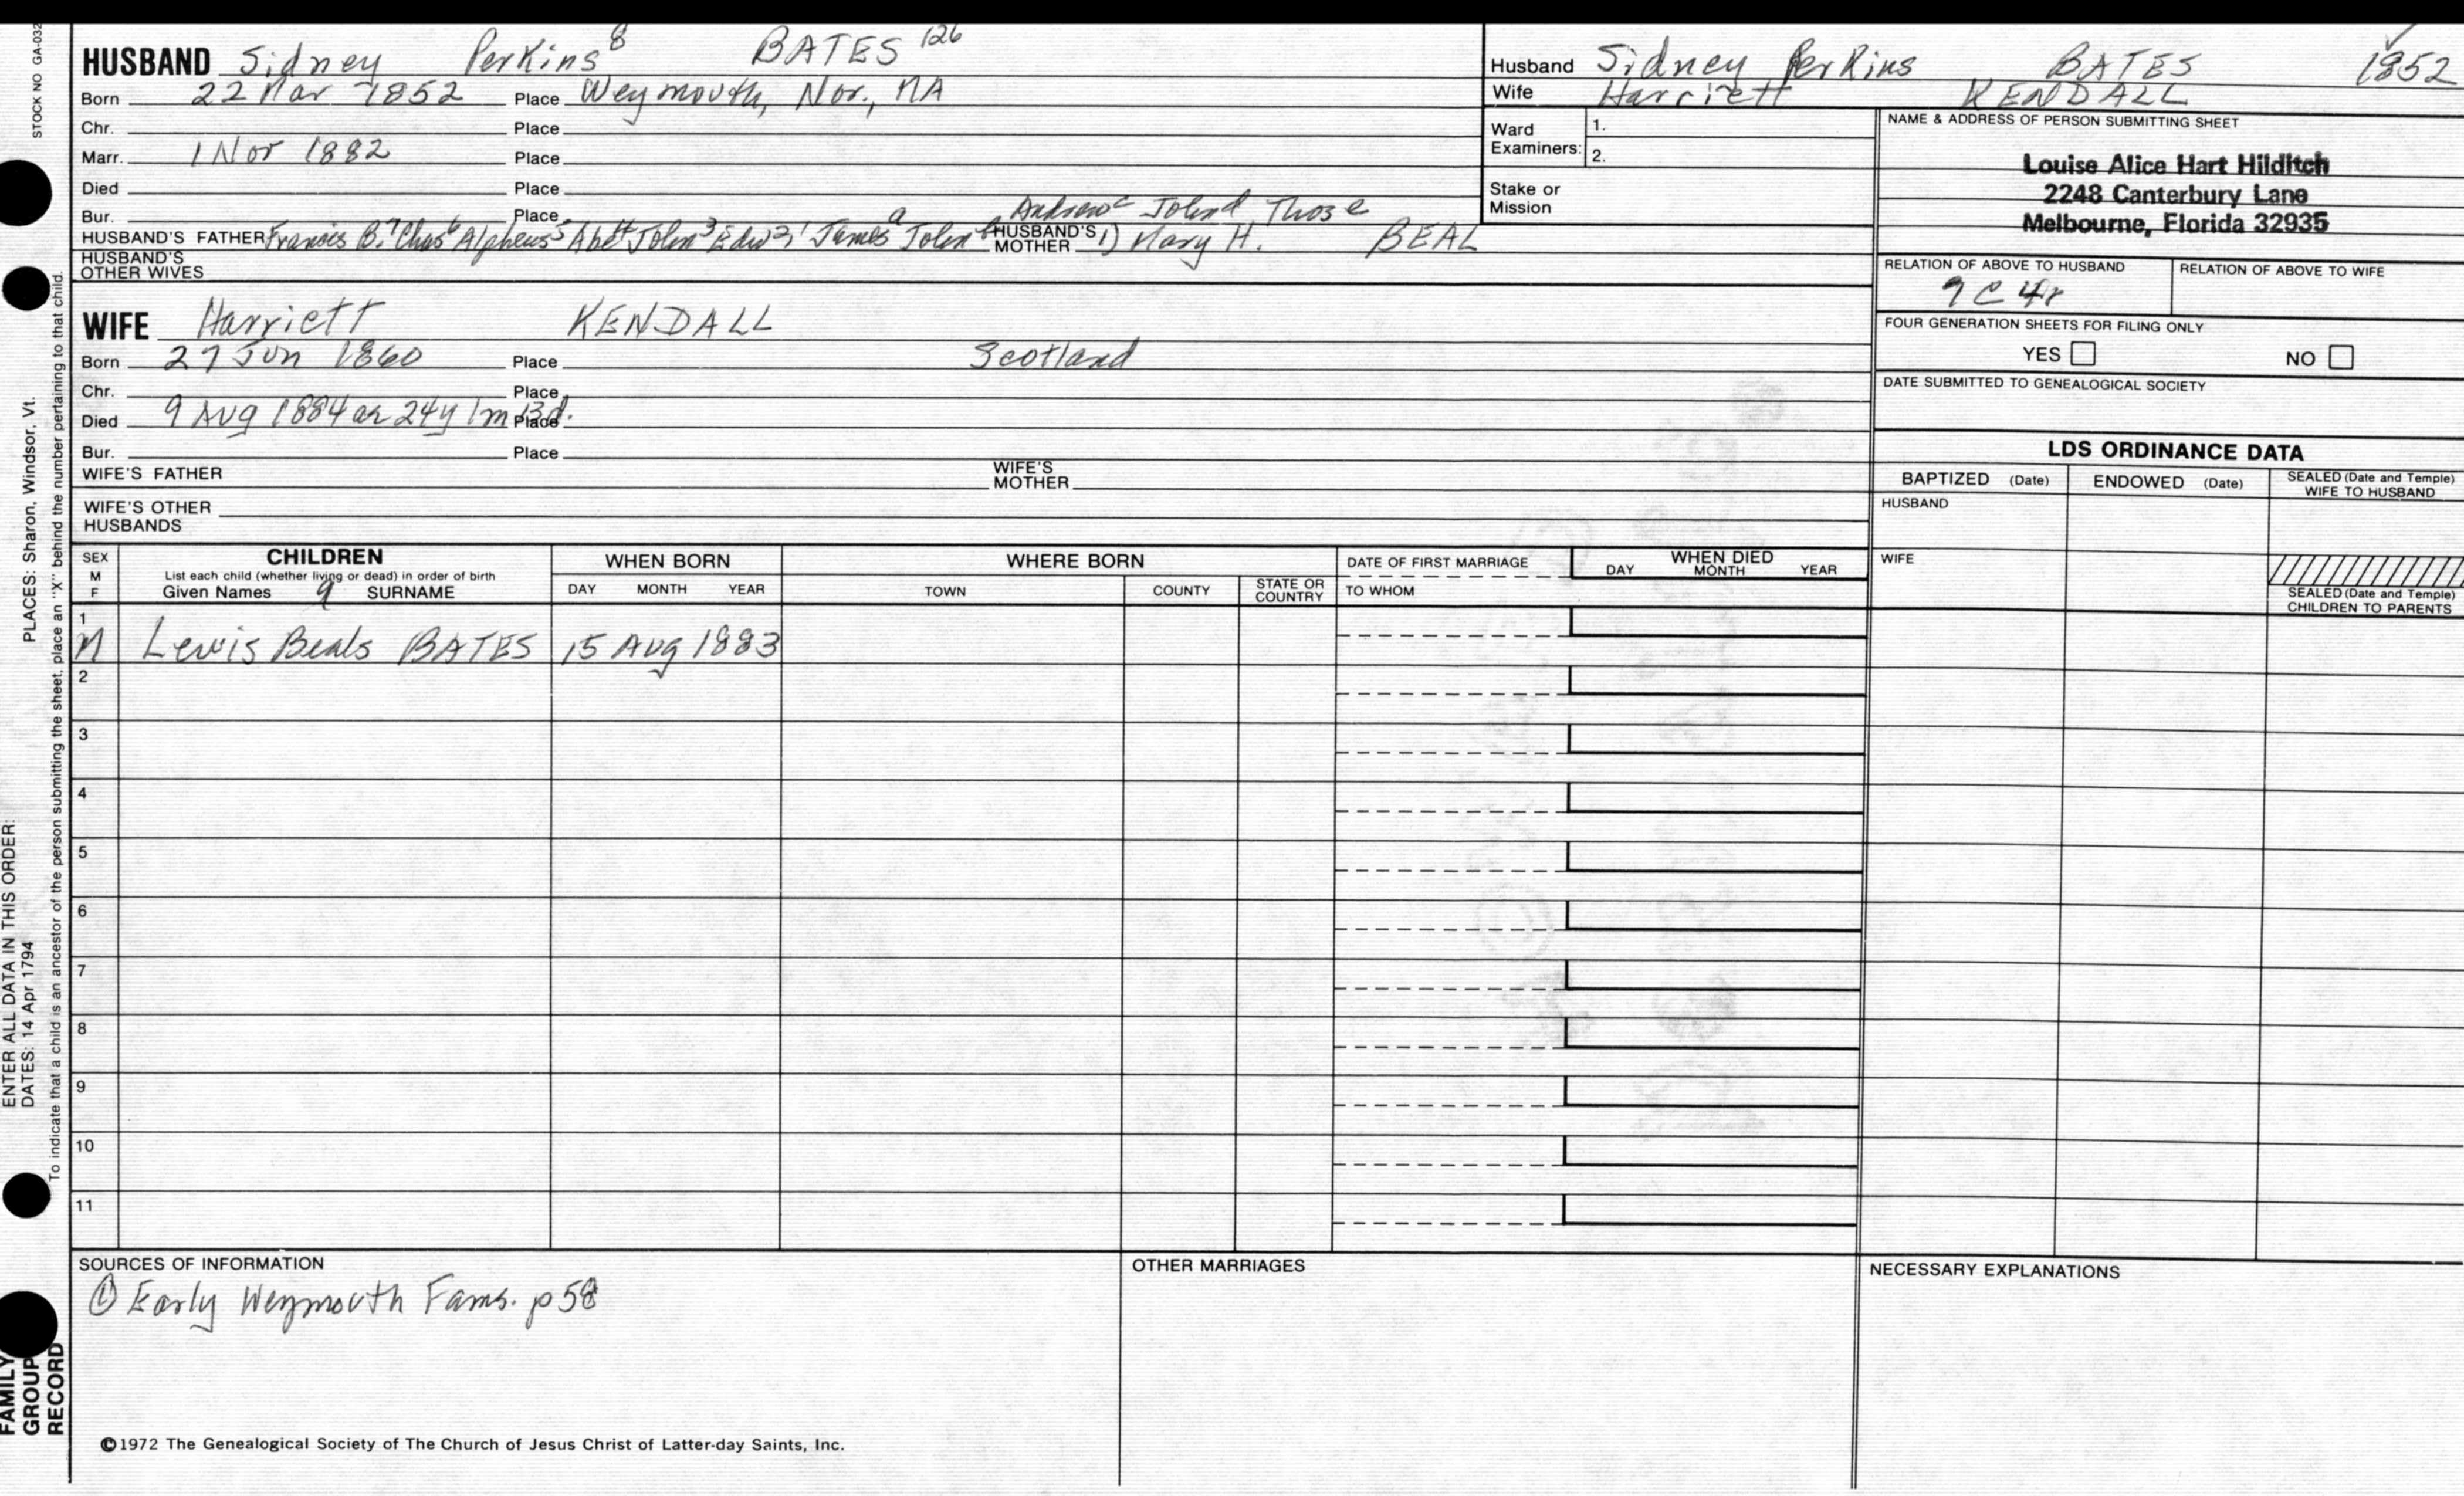 STOCK NO GA-032
HUSBAND Sidney Perkins 8 BATES 126
Born 22 Mar 1852 Place Weymouth, Nor., MA
Chr. Place
Marr. 1 Nov 1882 Place
Died Place
Bur. Place
Andrew c John d Thos e
HUSBAND'S FATHER Francis B. 7 Chas 6 Alpheus 5 Abr 4 John 3 Edw 2, 1 James a John b HUSBAND'S MOTHER 1) Mary H. BEAL
HUSBAND'S OTHER WIVES
WIFE Harriett KENDALL
Born 27 Jun 1860 Place Scotland
Chr. Place
Died 9 Aug 1884 ae 24y 1m 13d. Place
Bur. Place
WIFE'S FATHER WIFE'S MOTHER
WIFE'S OTHER HUSBANDS
Husband Sidney Perkins BATES 1852
Wife Harriett KENDALL
Ward Examiners: 1.
2.
Stake or Mission
NAME & ADDRESS OF PERSON SUBMITTING SHEET
Louise Alice Hart Hilditch
2248 Canterbury Lane
Melbourne, Florida 32935
RELATION OF ABOVE TO HUSBAND RELATION OF ABOVE TO WIFE
9 C 4r
FOUR GENERATION SHEETS FOR FILING ONLY
YES NO
DATE SUBMITTED TO GENEALOGICAL SOCIETY
LDS ORDINANCE DATA
BAPTIZED (Date) ENDOWED (Date) SEALED (Date and Temple) WIFE TO HUSBAND
HUSBAND
WIFE
SEALED (Date and Temple) CHILDREN TO PARENTS
SEX M F
CHILDREN
List each child (whether living or dead) in order of birth
Given Names 9 SURNAME
WHEN BORN
DAY MONTH YEAR
WHERE BORN
TOWN COUNTY STATE OR COUNTRY
DATE OF FIRST MARRIAGE
TO WHOM
WHEN DIED
DAY MONTH YEAR
1
M Lewis Beals BATES 15 Aug 1883
2
3
4
5
6
7
8
9
10
11
SOURCES OF INFORMATION
① Early Weymouth Fams. p 58
OTHER MARRIAGES
NECESSARY EXPLANATIONS
©1972 The Genealogical Society of The Church of Jesus Christ of Latter-day Saints, Inc.
FAMILY GROUP RECORD
ENTER ALL DATA IN THIS ORDER:
DATES: 14 Apr 1794
PLACES: Sharon, Windsor, Vt.
To indicate that a child is an ancestor of the person submitting the sheet, place an "X" behind the number pertaining to that child.